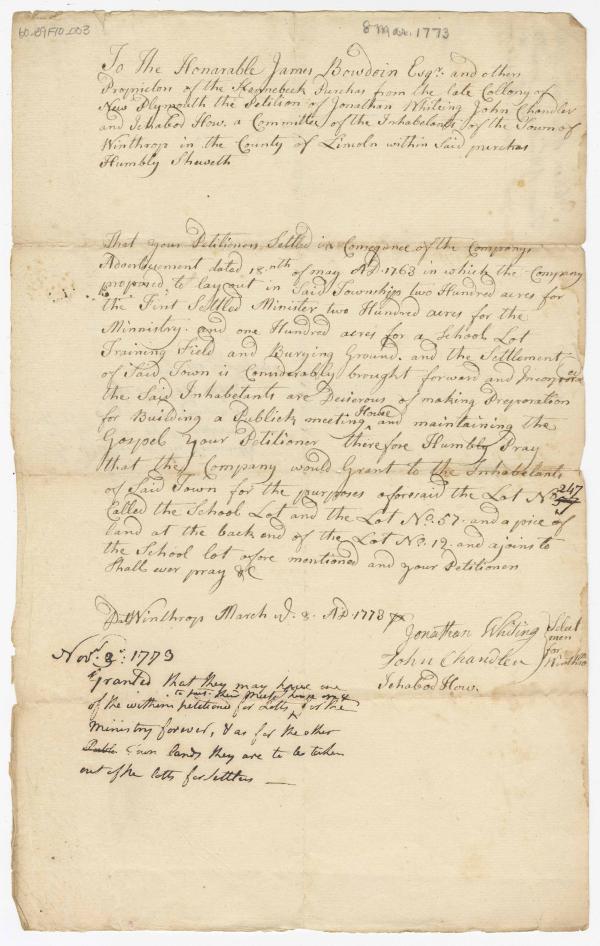 60-09F10-003
8 Mar. 1773
To The Honarable James Bowdoin Esqr. and others
Proprietors of the Kennebeck Purchas from the late Collony of
New Plymouth the Petition of Jonathan Whiteing John Chandler
and Ichabod How. a Committee of the Inhabelants of the Town of
Winthrop in the County of Lincoln within Said purchas
Humbly Sheweth
That your Petitioners Settled in Consequance of the Companys
Advertisement dated 18nth of may AD 1763 in which the Company
proposed to lay out in Said Townships two Hundred acres for
the First Settled Minister two Hundred acres for the
Minnistry. and one Hundred acres for a School Lot
Training Field and Burying Ground. and the Settlement
of Said Town is Considerably brought forward and Incorporated
the Said Inhabetants are Desierous of making Preproration
for Building a Publick meeting House and maintaining the
Gospel Your Petitioner therefore Humbly Pray
that the Company would Grant to the Inhabelants
of Said Town for the purposes aforesaid the Lot No. 247
Called the School Lot and the Lot No. 57. and a pice of
land at the back end of the Lot No. 12. and ajoins to
the School lot afore mentioned and your Petitioners
Shall ever pray &C
Winthrop March 8. AD. 1773
Jonathan Whiting
John Chandler
Ichabod How.
Select
men
for
Winthrop
Novr. 3d. 1773
granted that they may have one
to put their Meetg house on &
of the within petitioned for Lotts, for the
Ministry forever, & as for the other
Public Town lands they are to be taken
out of the lotts for Settlers